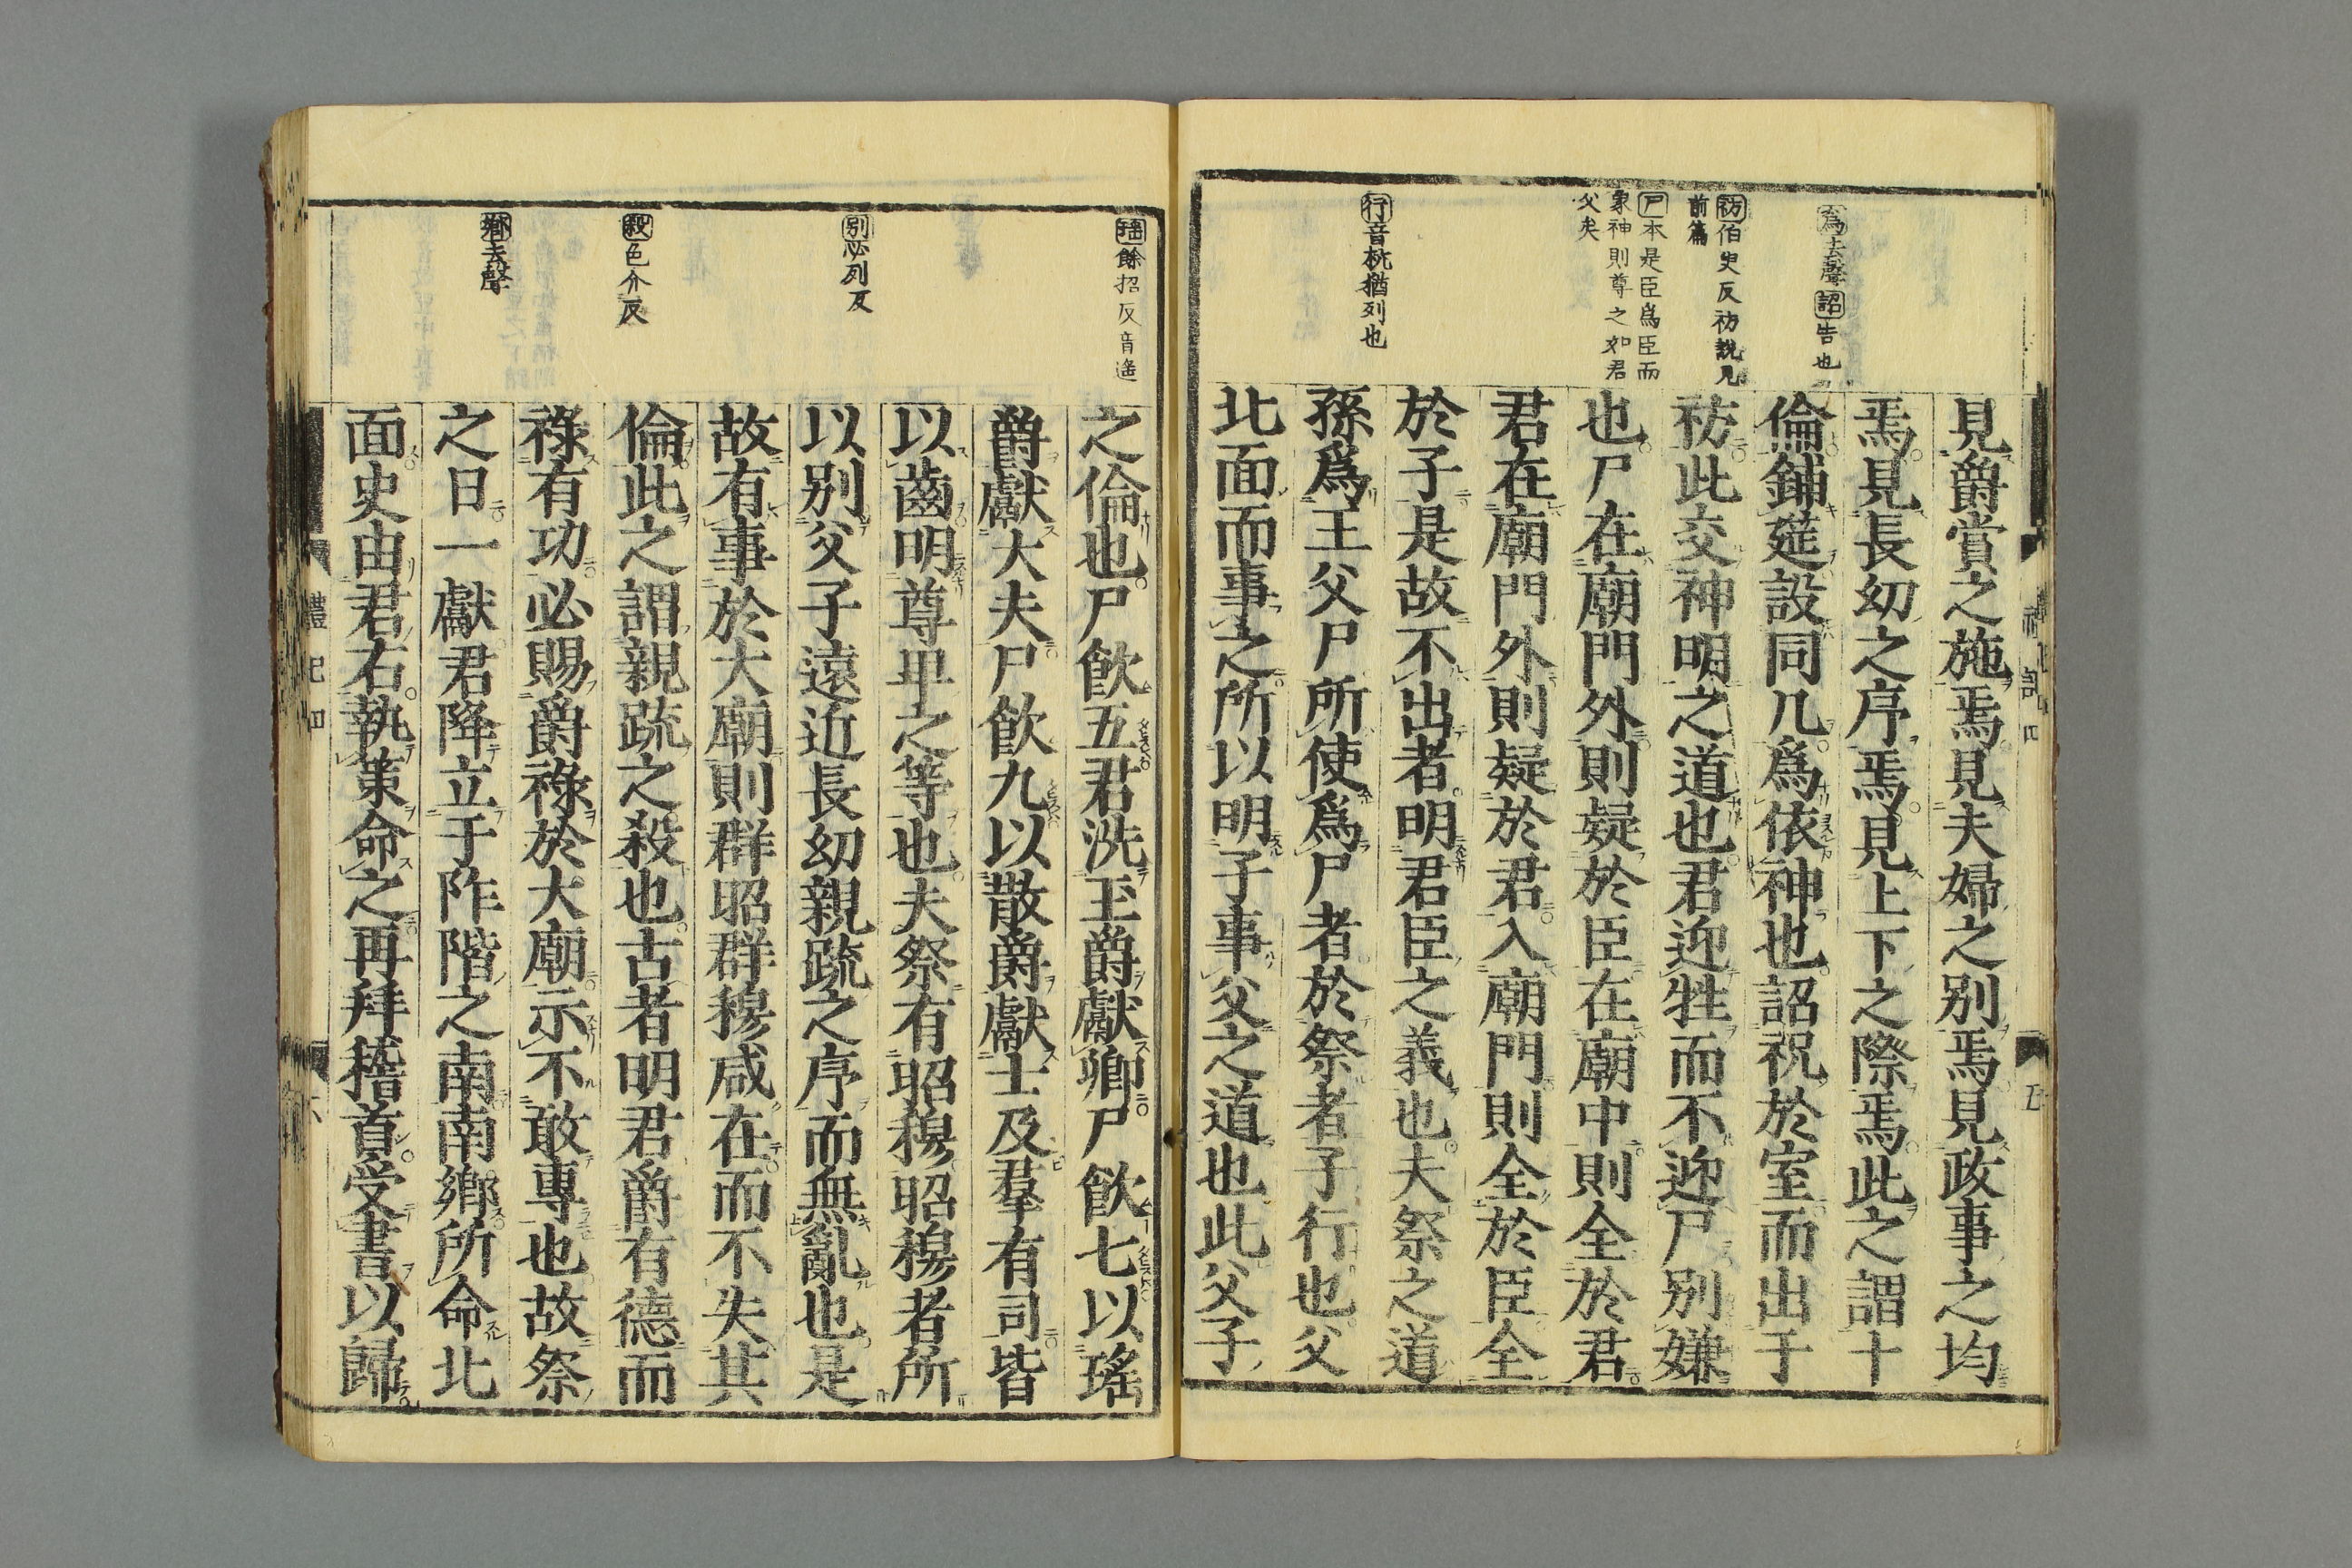 為去聲 詔告也
祊伯史反祊說見
前篇
尸本是臣爲臣而
象神則尊之如君
父矣
行音杭猶列也
見爵賞之施焉見夫婦之別焉見政事之均
焉見長幼之序焉見上下之際焉此之謂十
倫鋪筵設同几爲依神也詔祝於室而出于
祊此交神明之道也君迎牲而不迎尸別嫌
也尸在廟門外則疑於臣在廟中則全於君
君在廟門外則疑於君入廟門則全於臣全
於子是故不出者明君臣之義也夫祭之道
孫爲王父尸所使爲尸者於祭者子行也父
北面而事之所以明子事父之道也此父子
五
瑤餘招反音遙
別必列反
殺色介反
鄉去聲
之倫也尸飮五君洗玉爵獻卿尸飮七以瑤
爵獻大夫尸飮九以散爵獻士及羣有司皆
以齒明尊卑之等也夫祭有昭穆昭穆者所
以別父子遠近長幼親疏之序而無亂也是
故有事於大廟則群昭群穆咸在而不失其
倫此之謂親疏之殺也古者明君爵有德而
祿有功必賜爵祿於大廟示不敢專也故祭
之日一獻君降立于阼階之南南鄉所命北
面史由君右執策命之再拜稽首受書以歸
禮記四
六